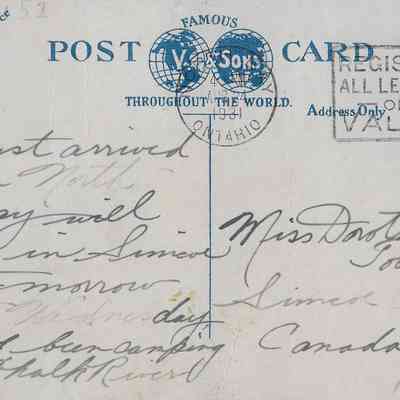 51
FAMOUS
POST CARD
V. & SONS
THROUGHOUT THE WORLD.
Address Only
1931
ONTARIO
REGIS
ALL LE
OF
VAL
ust arrived
North
ay will
in Simcoe
tomorrow
Wednesday
been camping
Chalk River
Miss Dorot
Simcoe
Canada